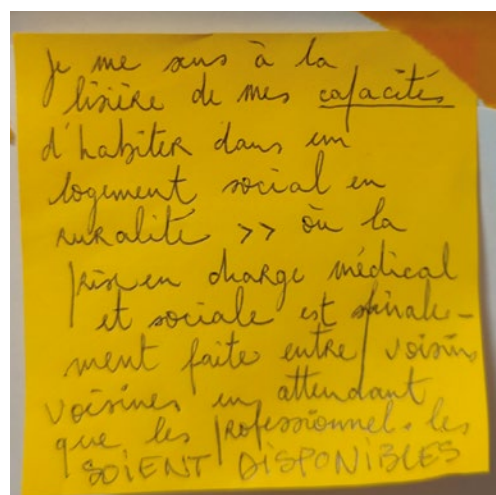 Je me sens à la
lisière de mes capacités
d'habiter dans un
logement social en
ruralité >> où la
prise en charge médical
et sociale est finale-
ment faite entre voisins
voisines en attendant
que les professionnel.les
SOIENT DISPONIBLES